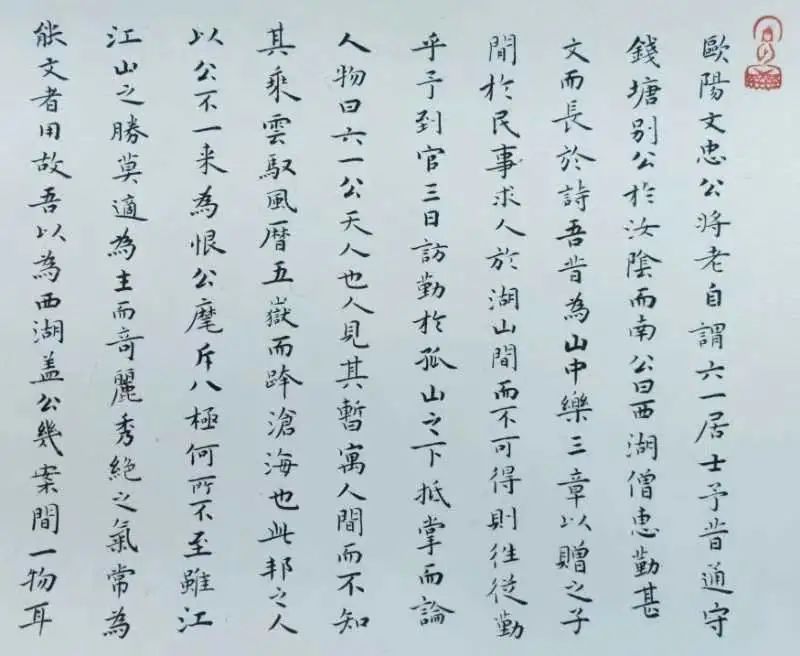 歐陽文忠公將老自謂六一居士予昔通守
錢塘別公於汝陰而南公曰西湖僧惠勤甚
文而長於詩吾昔為山中樂三章以贈之子
閒於民事求人於湖山間而不可得則往從勤
乎予到官三日訪勤於孤山之下抵掌而論
人物曰六一公天人也人見其暫寓人間而不知
其乘雲馭風歷五嶽而跨滄海也此邦之人
以公不一来為恨公麾斥八極何所不至雖江
江山之勝莫適為主而奇麗秀絕之氣常為
能文者用故吾以為西湖盖公几案間一物耳